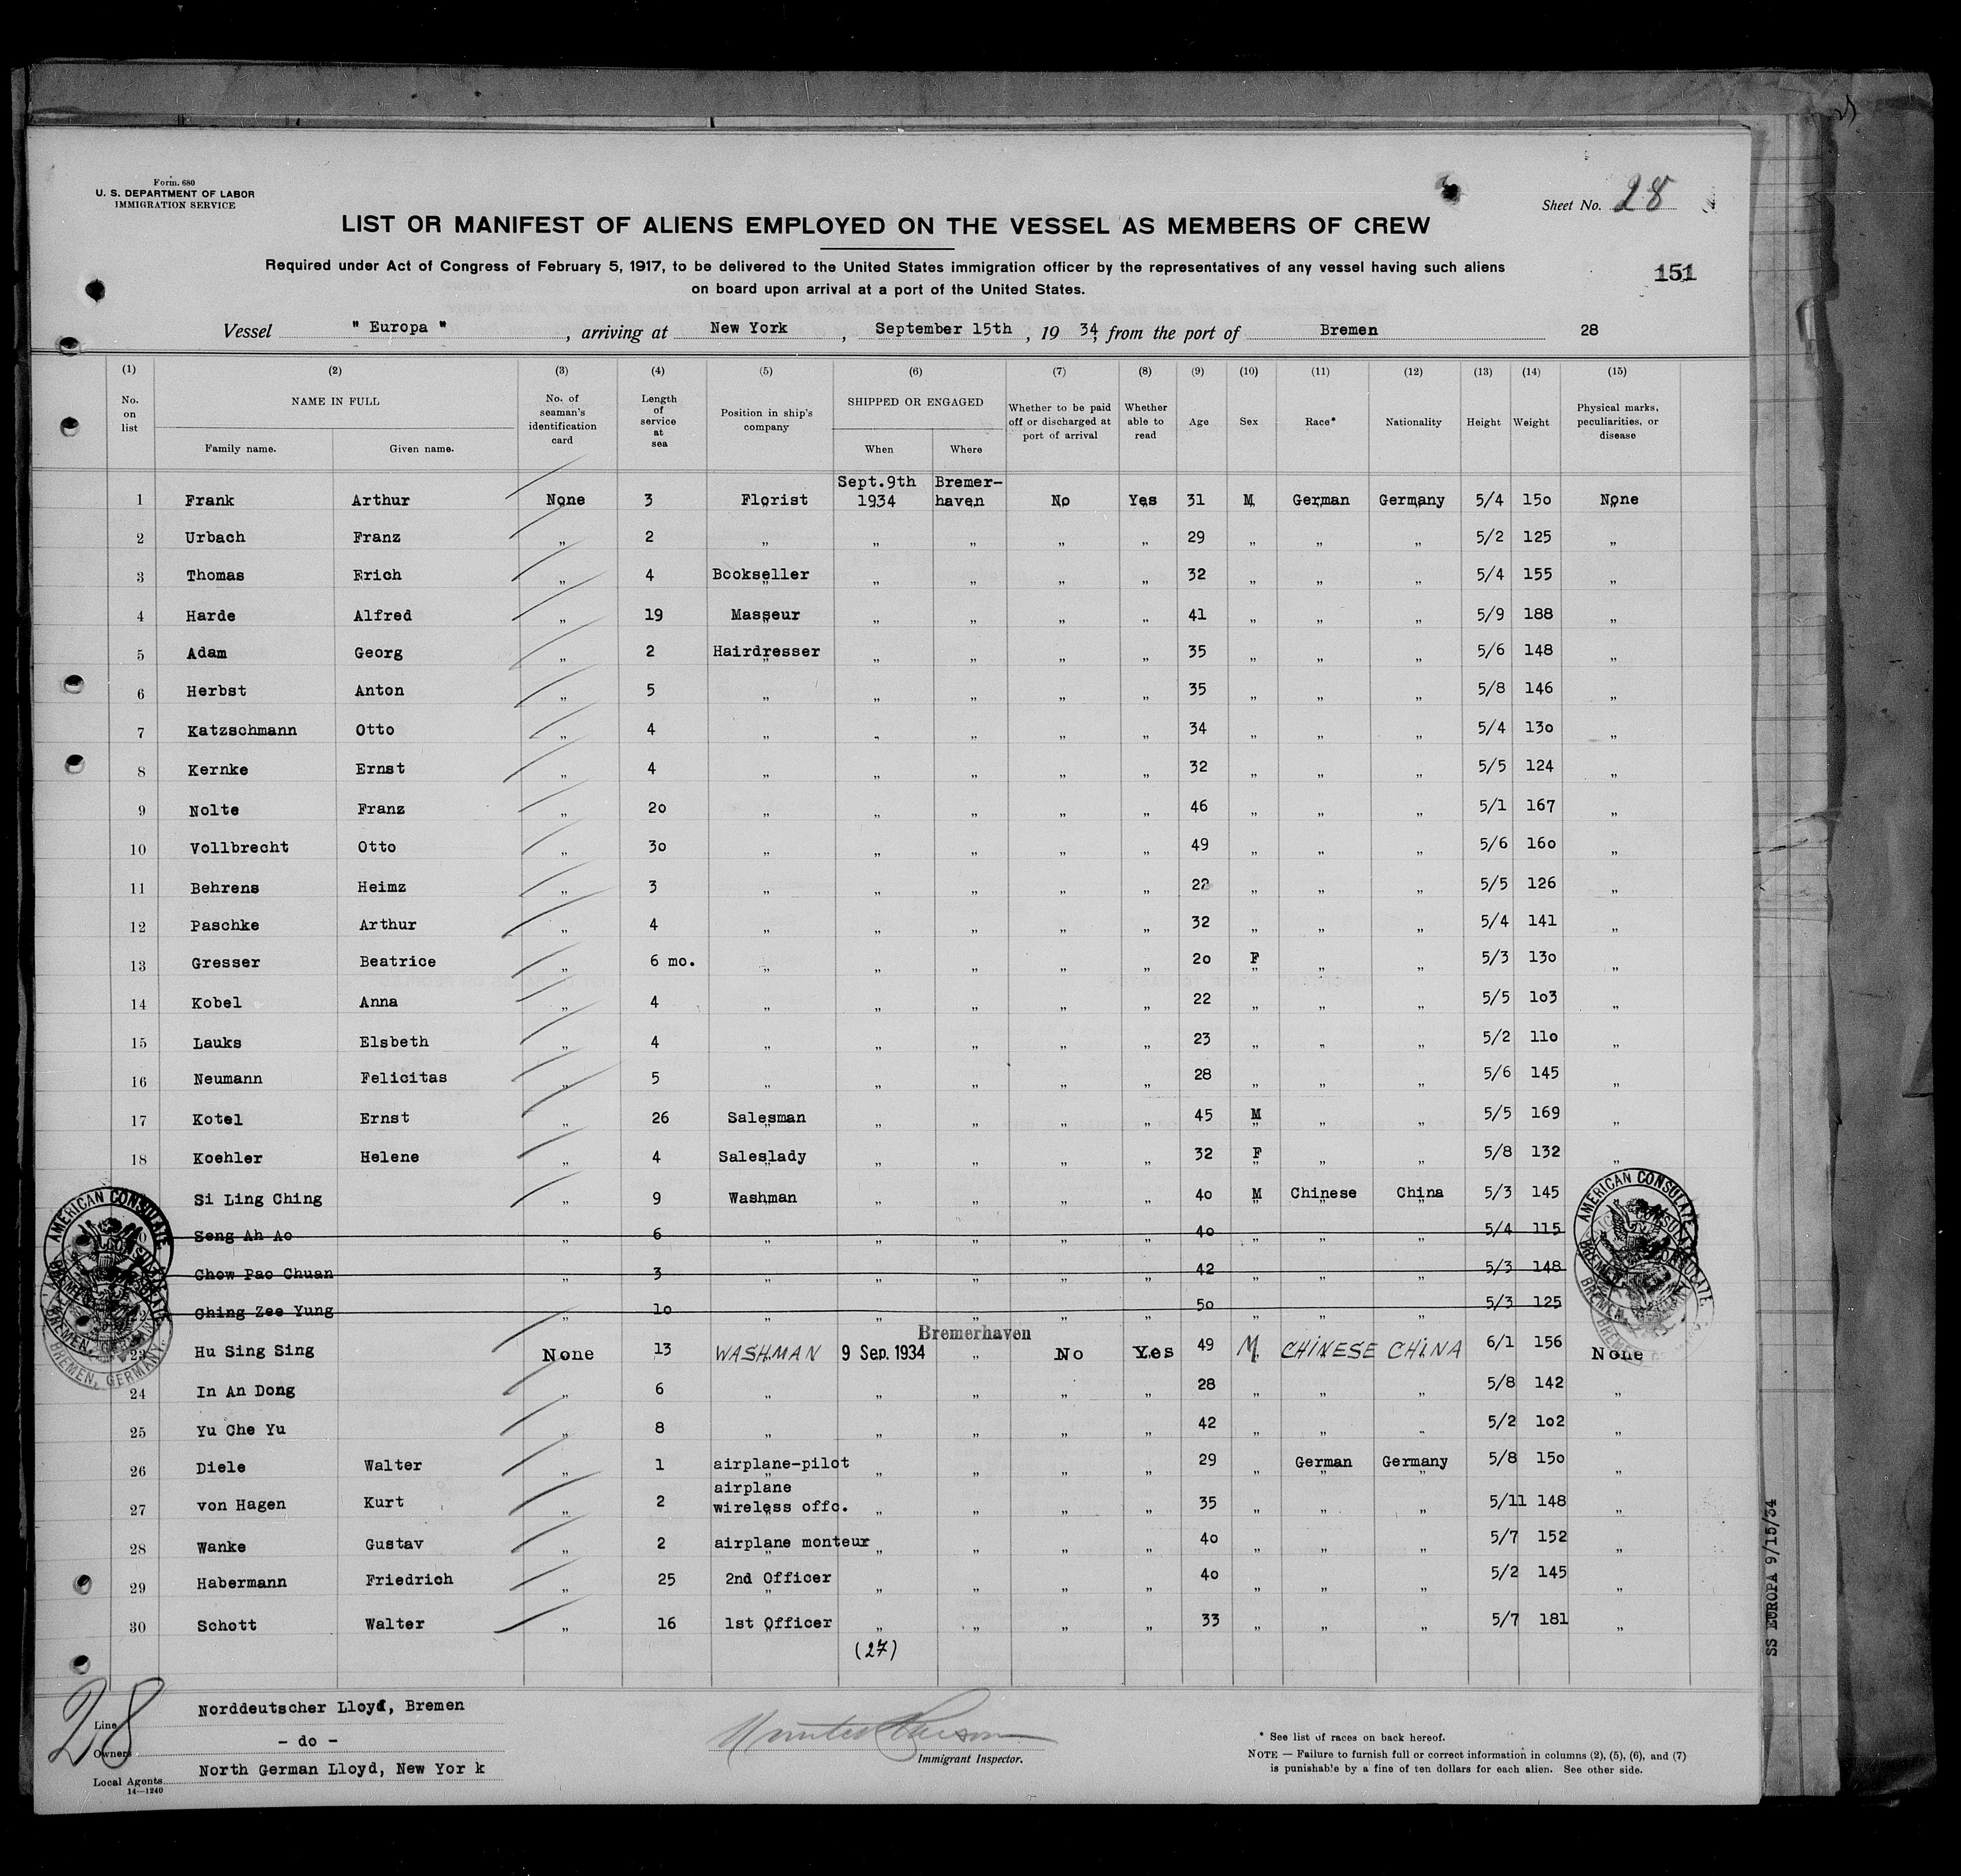 Form. 680
U. S. DEPARTMENT OF LABOR
IMMIGRATION SERVICE
Sheet No. 28
LIST OR MANIFEST OF ALIENS EMPLOYED ON THE VESSEL AS MEMBERS OF CREW
Required under Act of Congress of February 5, 1917, to be delivered to the United States immigration officer by the representatives of any vessel having such aliens
on board upon arrival at a port of the United States.
151
Vessel " Europa " , arriving at New York , September 15th , 19 34, from the port of Bremen 28
(1) (2) (3) (4) (5) (6) (7) (8) (9) (10) (11) (12) (13) (14) (15)
No. on list NAME IN FULL Family name. Given name. No. of seaman's identification card Length of service at sea Position in ship's company SHIPPED OR ENGAGED When Where Whether to be paid off or discharged at port of arrival Whether able to read Age Sex Race* Nationality Height Weight Physical marks, peculiarities, or disease
1 Frank Arthur None 3 Florist Sept.9th 1934 Bremer-haven No Yes 31 M German Germany 5/4 150 None
2 Urbach Franz „ 2 „ „ „ „ „ 29 „ „ „ 5/2 125 „
3 Thomas Erich „ 4 Bookseller „ „ „ „ 32 „ „ „ 5/4 155 „
4 Harde Alfred „ 19 Masseur „ „ „ „ 41 „ „ „ 5/9 188 „
5 Adam Georg „ 2 Hairdresser „ „ „ „ 35 „ „ „ 5/6 148 „
6 Herbst Anton „ 5 „ „ „ „ „ 35 „ „ „ 5/8 146 „
7 Katzschmann Otto „ 4 „ „ „ „ „ 34 „ „ „ 5/4 130 „
8 Kernke Ernst „ 4 „ „ „ „ „ 32 „ „ „ 5/5 124 „
9 Nolte Franz „ 20 „ „ „ „ „ 46 „ „ „ 5/1 167 „
10 Vollbrecht Otto „ 30 „ „ „ „ „ 49 „ „ „ 5/6 160 „
11 Behrens Heimz „ 3 „ „ „ „ „ 22 „ „ „ 5/5 126 „
12 Paschke Arthur „ 4 „ „ „ „ „ 32 „ „ „ 5/4 141 „
13 Gresser Beatrice „ 6 mo. „ „ „ „ „ 20 F „ „ 5/3 130 „
14 Kobel Anna „ 4 „ „ „ „ „ 22 „ „ „ 5/5 103 „
15 Lauks Elsbeth „ 4 „ „ „ „ „ 23 „ „ „ 5/2 110 „
16 Neumann Felicitas „ 5 „ „ „ „ „ 28 „ „ „ 5/6 145 „
17 Kotel Ernst „ 26 Salesman „ „ „ „ 45 M „ „ 5/5 169 „
18 Koehler Helene „ 4 Saleslady „ „ „ „ 32 F „ „ 5/8 132 „
Si Ling Ching „ 9 Washman „ „ „ „ 40 M Chinese China 5/3 145
Seng Ah Ao „ 6 „ „ „ „ „ 40 „ „ „ 5/4 115
Chow Pao Chuan „ 3 „ „ „ „ „ 42 „ „ „ 5/3 148
Ching Zee Yung „ 10 „ „ „ „ „ 50 „ „ „ 5/3 125
Bremerhaven
23 Hu Sing Sing None 13 WASHMAN 9 Sep. 1934 „ No Yes 49 M CHINESE CHINA 6/1 156 None
24 In An Dong „ 6 „ „ „ „ „ 28 „ „ „ 5/8 142 „
25 Yu Che Yu „ 8 „ „ „ „ „ 42 „ „ „ 5/2 102 „
26 Diele Walter „ 1 airplane-pilot „ „ „ „ 29 „ German Germany 5/8 150 „
27 von Hagen Kurt „ 2 airplane wireless offc. „ „ „ „ 35 „ „ „ 5/11 148 „
28 Wanke Gustav „ 2 airplane monteur „ „ „ „ 40 „ „ „ 5/7 152 „
29 Habermann Friedrich „ 25 2nd Officer „ „ „ „ 40 „ „ „ 5/2 145 „
30 Schott Walter „ 16 1st Officer „ „ „ „ 33 „ „ „ 5/7 181 „
(27)
AMERICAN CONSULATE
BREMEN, GERMANY
AMERICAN CONSULATE
BREMEN
28
Line Norddeutscher Lloyd, Bremen
Owners - do -
Local Agents North German Lloyd, New Yor k
14—1240
Immigrant Inspector.
* See list of races on back hereof.
NOTE — Failure to furnish full or correct information in columns (2), (5), (6), and (7)
is punishable by a fine of ten dollars for each alien. See other side.
SS EUROPA 9/15/34